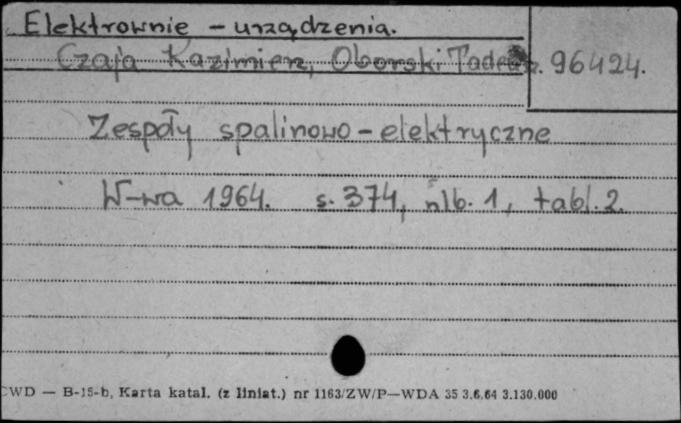 Elektrownie - urządzenia.
Czaja Kazimierz, Oborski Tadeusz. 96424.
Zespoły spalinowo - elektryczne
W-wa 1964. s. 374, nlb. 1, tabl. 2.
CWD — B-15-b, Karta katal. (z liniat.) nr 1163/ZW/P—WDA 35 3.6.64 3.130.000